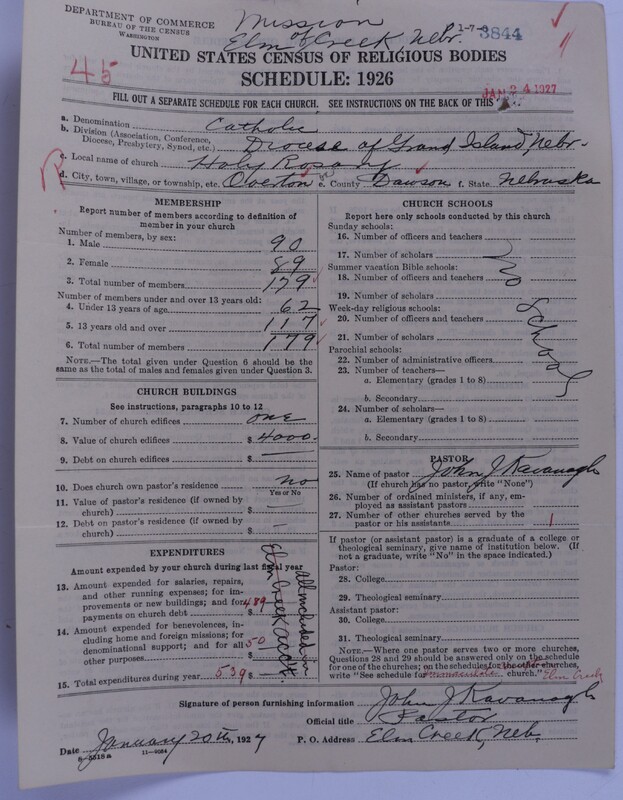 DEPARTMENT OF COMMERCE
BUREAU OF THE CENSUS
WASHINGTON
Mission
of
Elm Creek, Nebr.
1-7-8 3844
45
UNITED STATES CENSUS OF RELIGIOUS BODIES
SCHEDULE: 1926
JAN 24 1927
FILL OUT A SEPARATE SCHEDULE FOR EACH CHURCH. SEE INSTRUCTIONS ON THE BACK OF THIS
a. Denomination Catholic
b. Division (Association, Conference, Diocese, Presbytery, Synod, etc.) Diocese of Grand Island, Nebr.
c. Local name of church Holy Rosary
R
d. City, town, village, or township, etc. Overton e. County Dawson f. State Nebraska
MEMBERSHIP
Report number of members according to definition of
member in your church
Number of members, by sex:
1. Male 90
2. Female 89
3. Total number of members 179
Number of members under and over 13 years old:
4. Under 13 years of age 62
5. 13 years old and over 117
6. Total number of members 179
NOTE.—The total given under Question 6 should be
same as the total of males and females given under Question 3.
CHURCH BUILDINGS
See instructions, paragraphs 10 to 12
7. Number of church edifices one
8. Value of church edifices $ 4000.
9. Debt on church edifices $ —
10. Does church own pastor's residence no
Yes or No
11. Value of pastor's residence (if owned by
church) $ —
12. Debt on pastor's residence (if owned by
church) $ —
EXPENDITURES
Amount expended by your church during last fiscal year
13. Amount expended for salaries, repairs,
and other running expenses; for im-
provements or new buildings; and for
payments on church debt $ 489
14. Amount expended for benevolences, in-
cluding home and foreign missions; for
denominational support; and for all
other purposes $ 50
15. Total expenditures during year 539 $
all included in
Elm Creek acc't.
CHURCH SCHOOLS
Report here only schools conducted by this church
Sunday schools:
16. Number of officers and teachers
17. Number of scholars
Summer vacation Bible schools:
18. Number of officers and teachers
19. Number of scholars
Week-day religious schools:
20. Number of officers and teachers
21. Number of scholars
Parochial schools:
22. Number of administrative officers
23. Number of teachers—
a. Elementary (grades 1 to 8)
b. Secondary
24. Number of scholars—
a. Elementary (grades 1 to 8)
b. Secondary
No School
PASTOR
25. Name of pastor John J Kavanagh
(If church has no pastor, write "None")
26. Number of ordained ministers, if any, em-
ployed as assistant pastors
27. Number of other churches served by the
pastor or his assistants 1
If pastor (or assistant pastor) is a graduate of a college or
theological seminary, give name of institution below. (If
not a graduate, write "No" in the space indicated.)
Pastor:
28. College
29. Theological seminary
Assistant pastor:
30. College
31. Theological seminary
NOTE.—Where one pastor serves two or more churches,
Questions 28 and 29 should be answered only on the schedule
for one of the churches; on the schedules for the other churches,
write "See schedule for Immaculate church." Elm Creek
Signature of person furnishing information John J Kavanagh
Official title Pastor
Date January 20th, 1927 P. O. Address Elm Creek, Neb.
8-3518a 11-9084